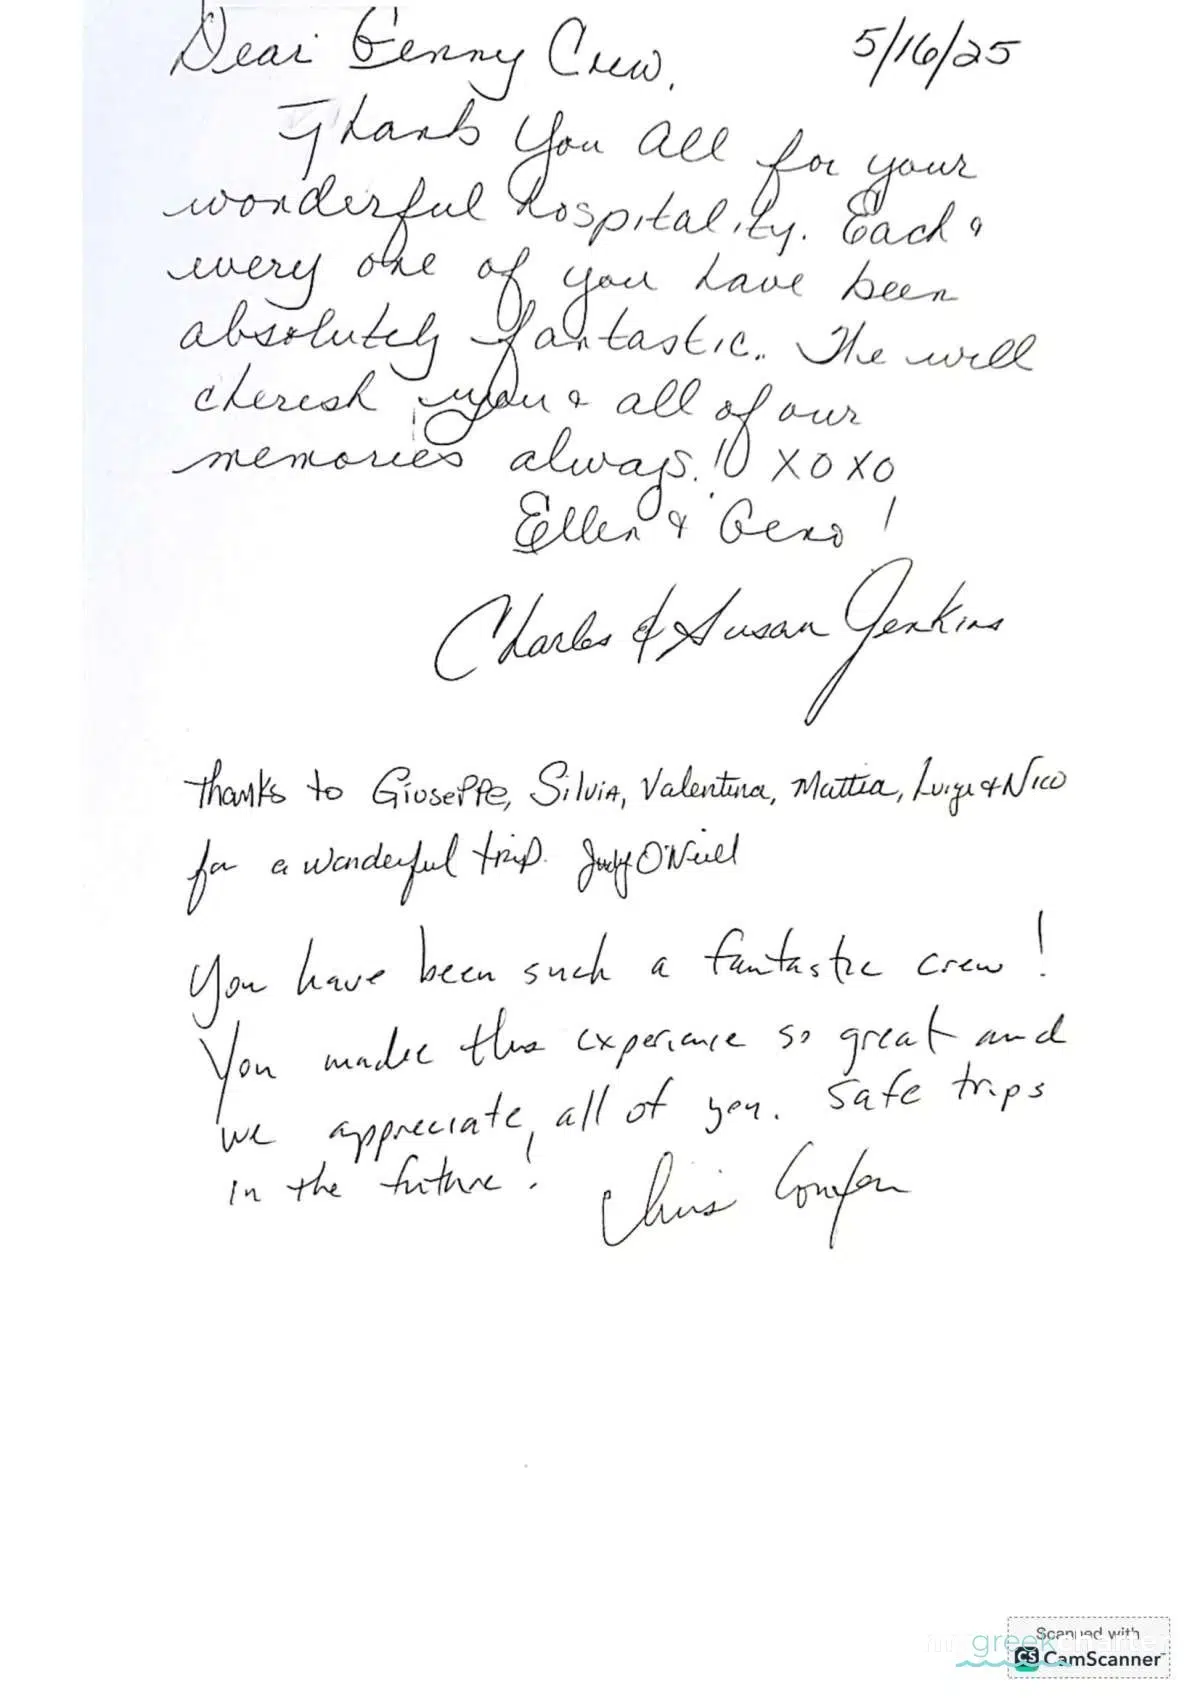 Dear Genny Crew, 5/16/25
Thank You all for your
wonderful hospitality. Each &
every one of you have been
absolutely fantastic. The will
cherish you & all of our
memories always! XOXO
Ellen & Geno!
Charles & Susan Jenkins
Thanks to Giuseppe, Silvia, Valentina, Mattia, Luigi & Nico
for a wonderful trip. Judy O'Neill
You have been such a fantastic crew!
You made this experience so great and
we appreciate all of you. Safe trips
in the future! Chris
Scanned with
my greek charter
CS CamScanner